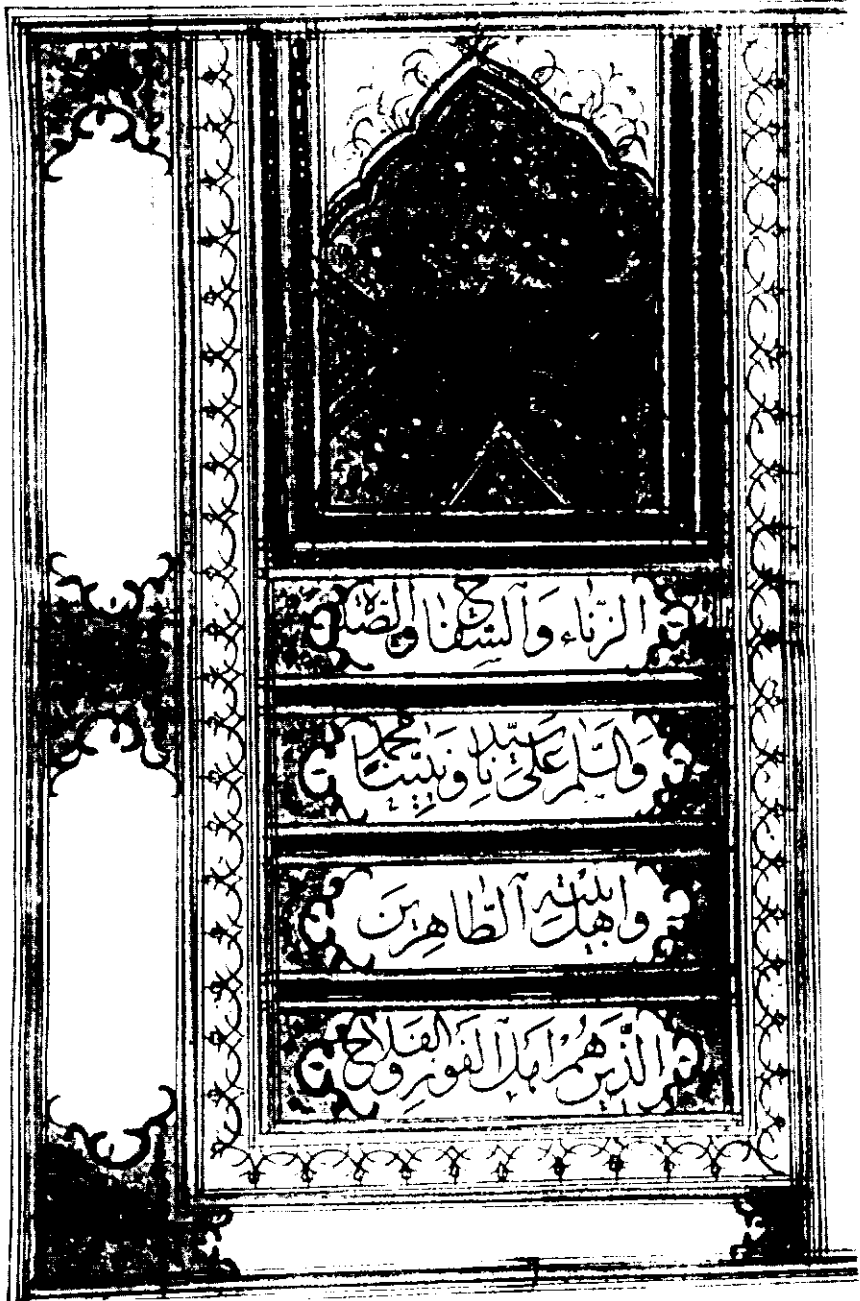 الزِّنَاء وَالسِّفَاحِ وَالصَّلٰوة
وَالسَّلٰمُ عَلٰى سَيِّدِنَا وَنَبِيِّنَا مُحَمَّد
وَاهْلِ بَيْتِهِ الطَّاهِرِينَ
الَّذِينَ هُمْ اَهْلُ الْفَوْزِ وَالْفَلَاحِ